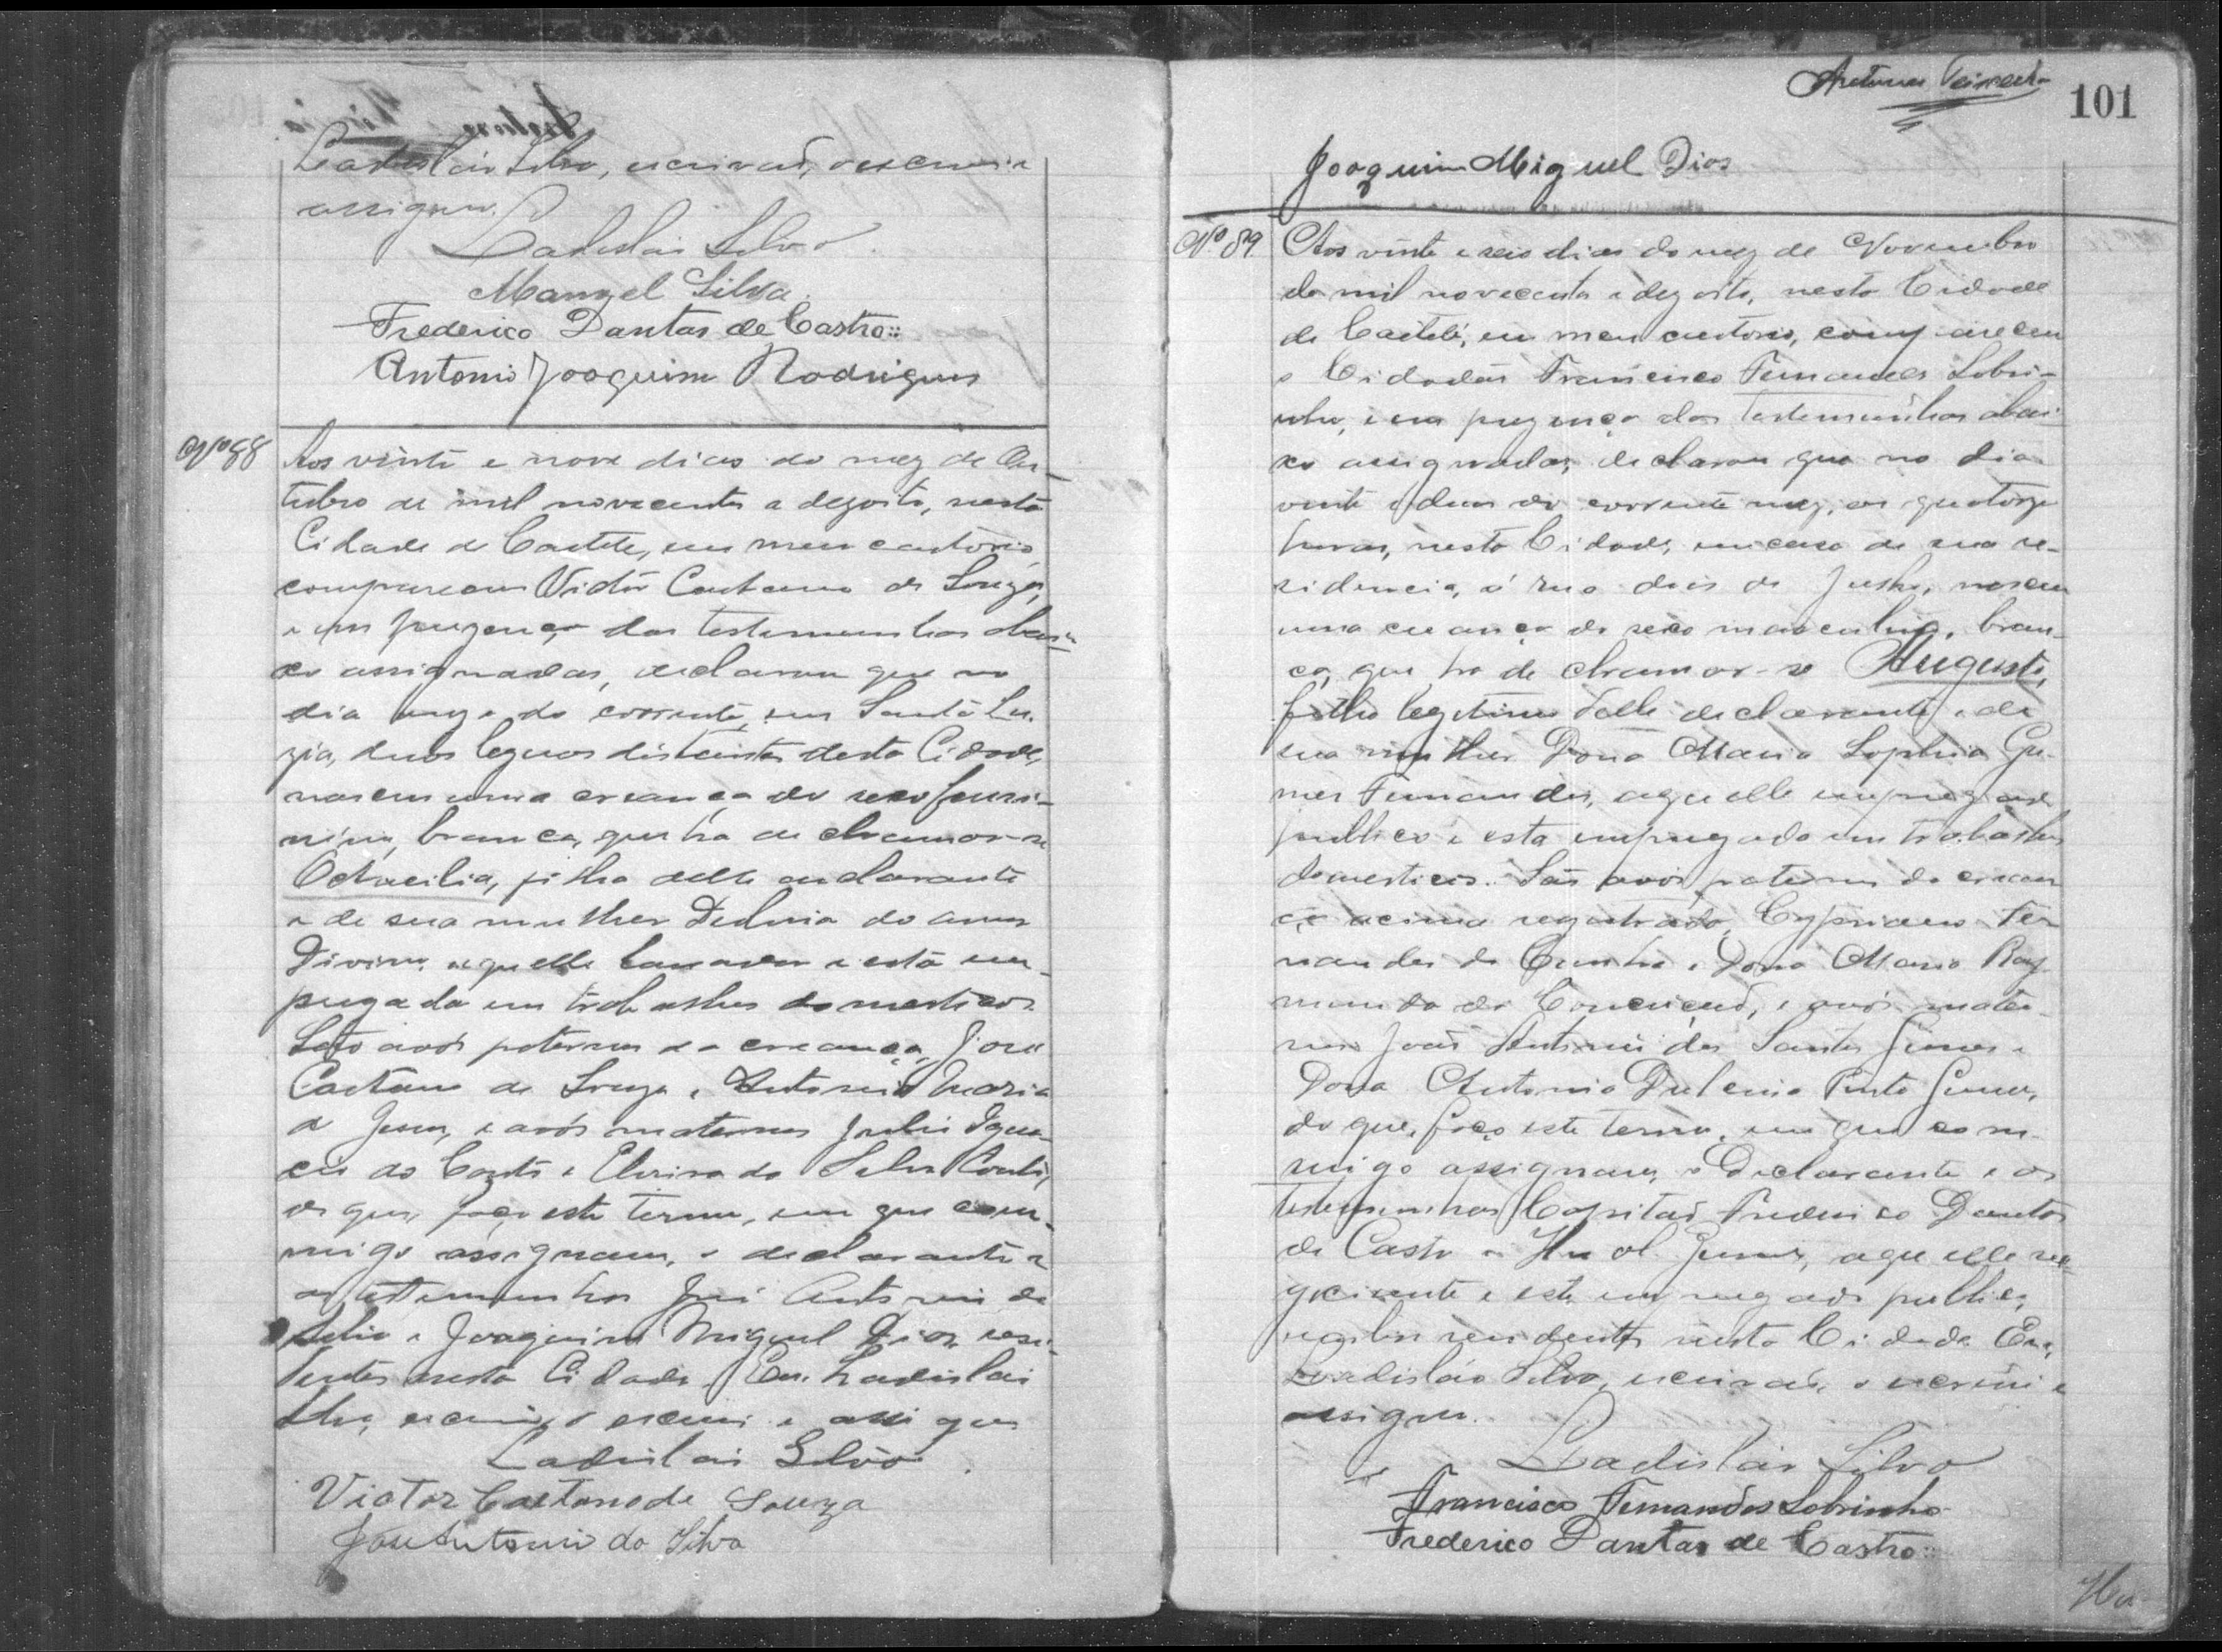 Ladisláo Silva, escrivão, o escrevi e
assigno.
Ladislau Silva.
Manoel Silva.
Frederico Dantas de Castro::
Antonio Joaquim Rodrigues
Nº 88
Aos vinte e nove dias do mez de Ou-
tubro de mil novecentos e dezoito, nesta
Cidade de Caetité, em meu cartorio,
compareceu Victor Caetano de Souza,
e em prezença das testemunhas abai-
xo assignadas, declarou que no
dia onze do corrente, em Santa Lu-
zia, duas leguas distante desta Cidade,
nasceu uma creança do sexo femi-
nino, branca, que ha de chamar-se
Octacilia, filha delle declarante
e de sua mulher Delmia do amor
Divino, aquelle lavrador e esta em-
pregada em trabalhos domesticos.
São avós paternos da creança, José
Caetano de Souza e Antonia Maria
de Jesus, e avós maternos Julio Igna-
cio do Couto e Elvira da Silva Couto,
do que, faço este termo, em que com-
migo assignam, o declarante e
as testemunhas José Antonio da
Silva e Joaquim Miguel Dias, resi-
dentes nesta Cidade. Eu, Ladislau
Silva, escrivão, o escrevi e assigno
Ladislau Silva.
Victor Caetano de Souza
José Antonio da Silva
Antunes Teixeira
101
Joaquim Miguel Dias
Nº 89
Aos vinte e seis dias do mez de Novembro
de mil novecentos e dezoito, nesta Cidade
de Caetité, em meu cartorio, compareceu
o Cidadão Francisco Fernandes Sobri-
nho, e em prezença das testemunhas abai-
xo assignadas, declarou que no dia
vinte e duas do corrente mez, as quatorze
horas, nesta Cidade, em casa de sua re-
sidencia, á rua dois de Julho, nasceu
uma creança do sexo masculino, bran-
ca, que ha de chamar-se Augusto,
filho legitimo delle declarante e de
sua mulher Dona Maria Sophia Gu-
mes Fernandes, aquelle empregado
publico e esta empregada em trabalhos
domesticos. São avós paternos da crean-
ça acima registrada, Cypriano Fer-
nandes da Cunha e Dona Maria Ray-
munda da Conceição, e avós mater-
nos João Antonio dos Santos Gumes e
Dona Antonia Dulcina Pinto Gumes,
do que, faço este termo, em que com-
migo assignam, o Declarante e as
testemunhas Capitão Frederico Dantas
de Castro e Huol Gumes, aquelle ne-
gociante e este empregado publico,
ambos residentes nesta Cidade. Eu,
Ladisláo Silva, escrivão, o escrevi e
assigno.
Ladislau Silva
Francisco Fernandes Sobrinho
Frederico Dantas de Castro::
Hu